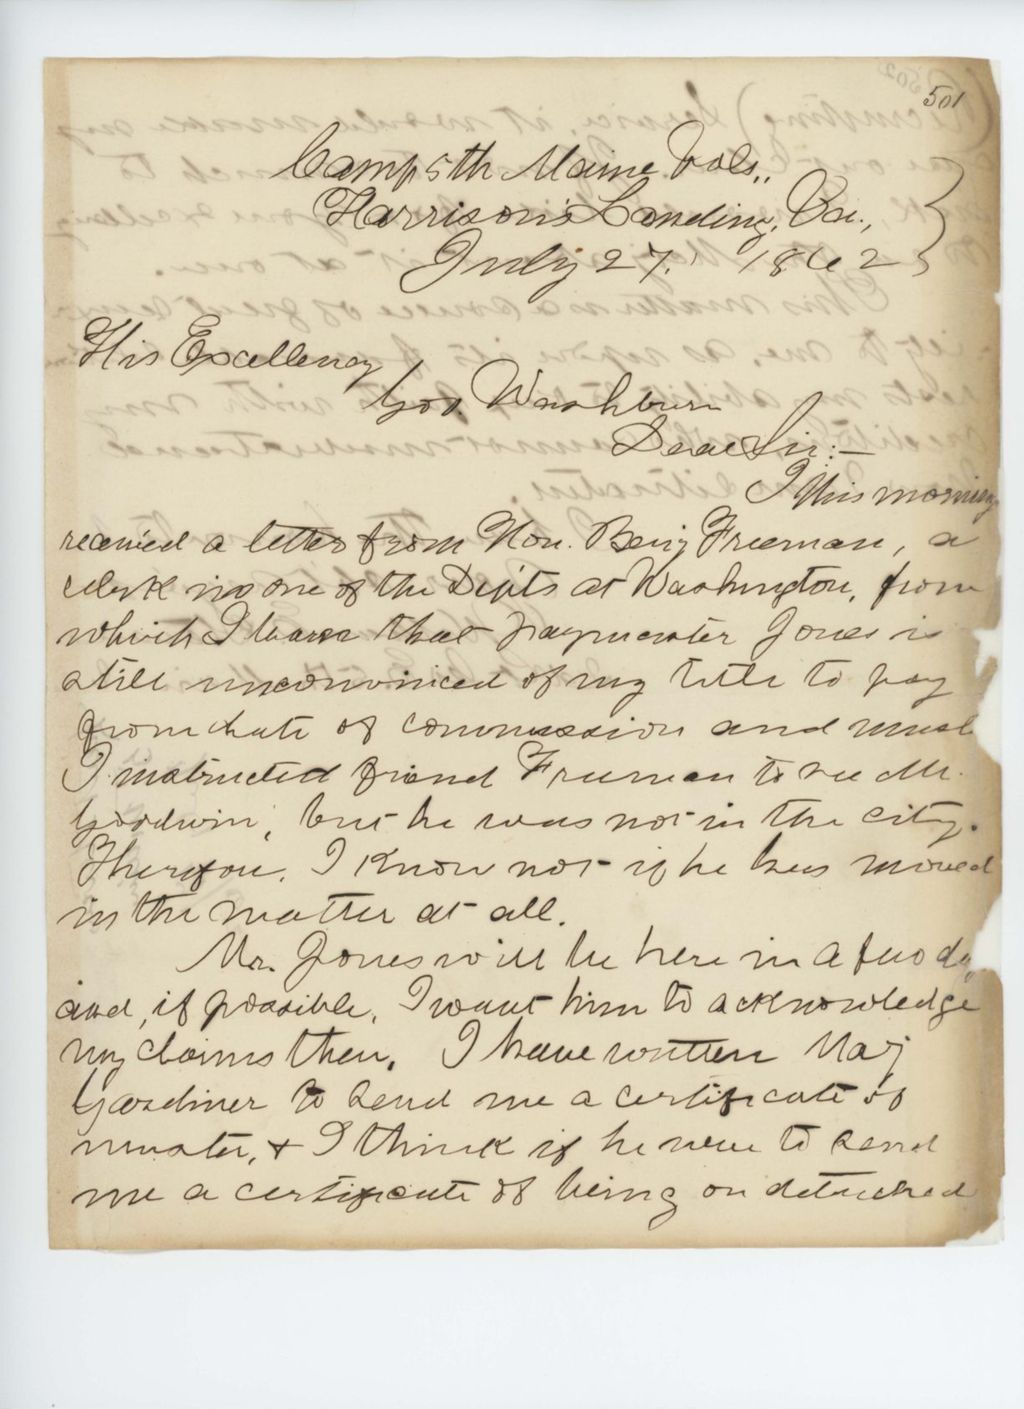 501
Camp 5th Maine Vols.,
Harrison's Landing, Va.,
July 27, 1862
His Excellency
Gov. Washburn
Dear Sir:—
I this morning
received a letter from Hon. Benj Freeman, a
clerk in one of the Depts at Washington, from
which I learn that paymaster Jones is
still unconvinced of my title to pay
from date of commission and must
I instructed friend Freeman to see Mr.
Goodwin, but he was not in the city.
Therefore, I know not if he has moved
in the matter at all.
Mr. Jones will be here in a few da
and, if possible, I want him to acknowledge
my claims then. I have written Maj
Gardiner to send me a certificate of
muster, & I think if he were to send
me a certificate of being on detached